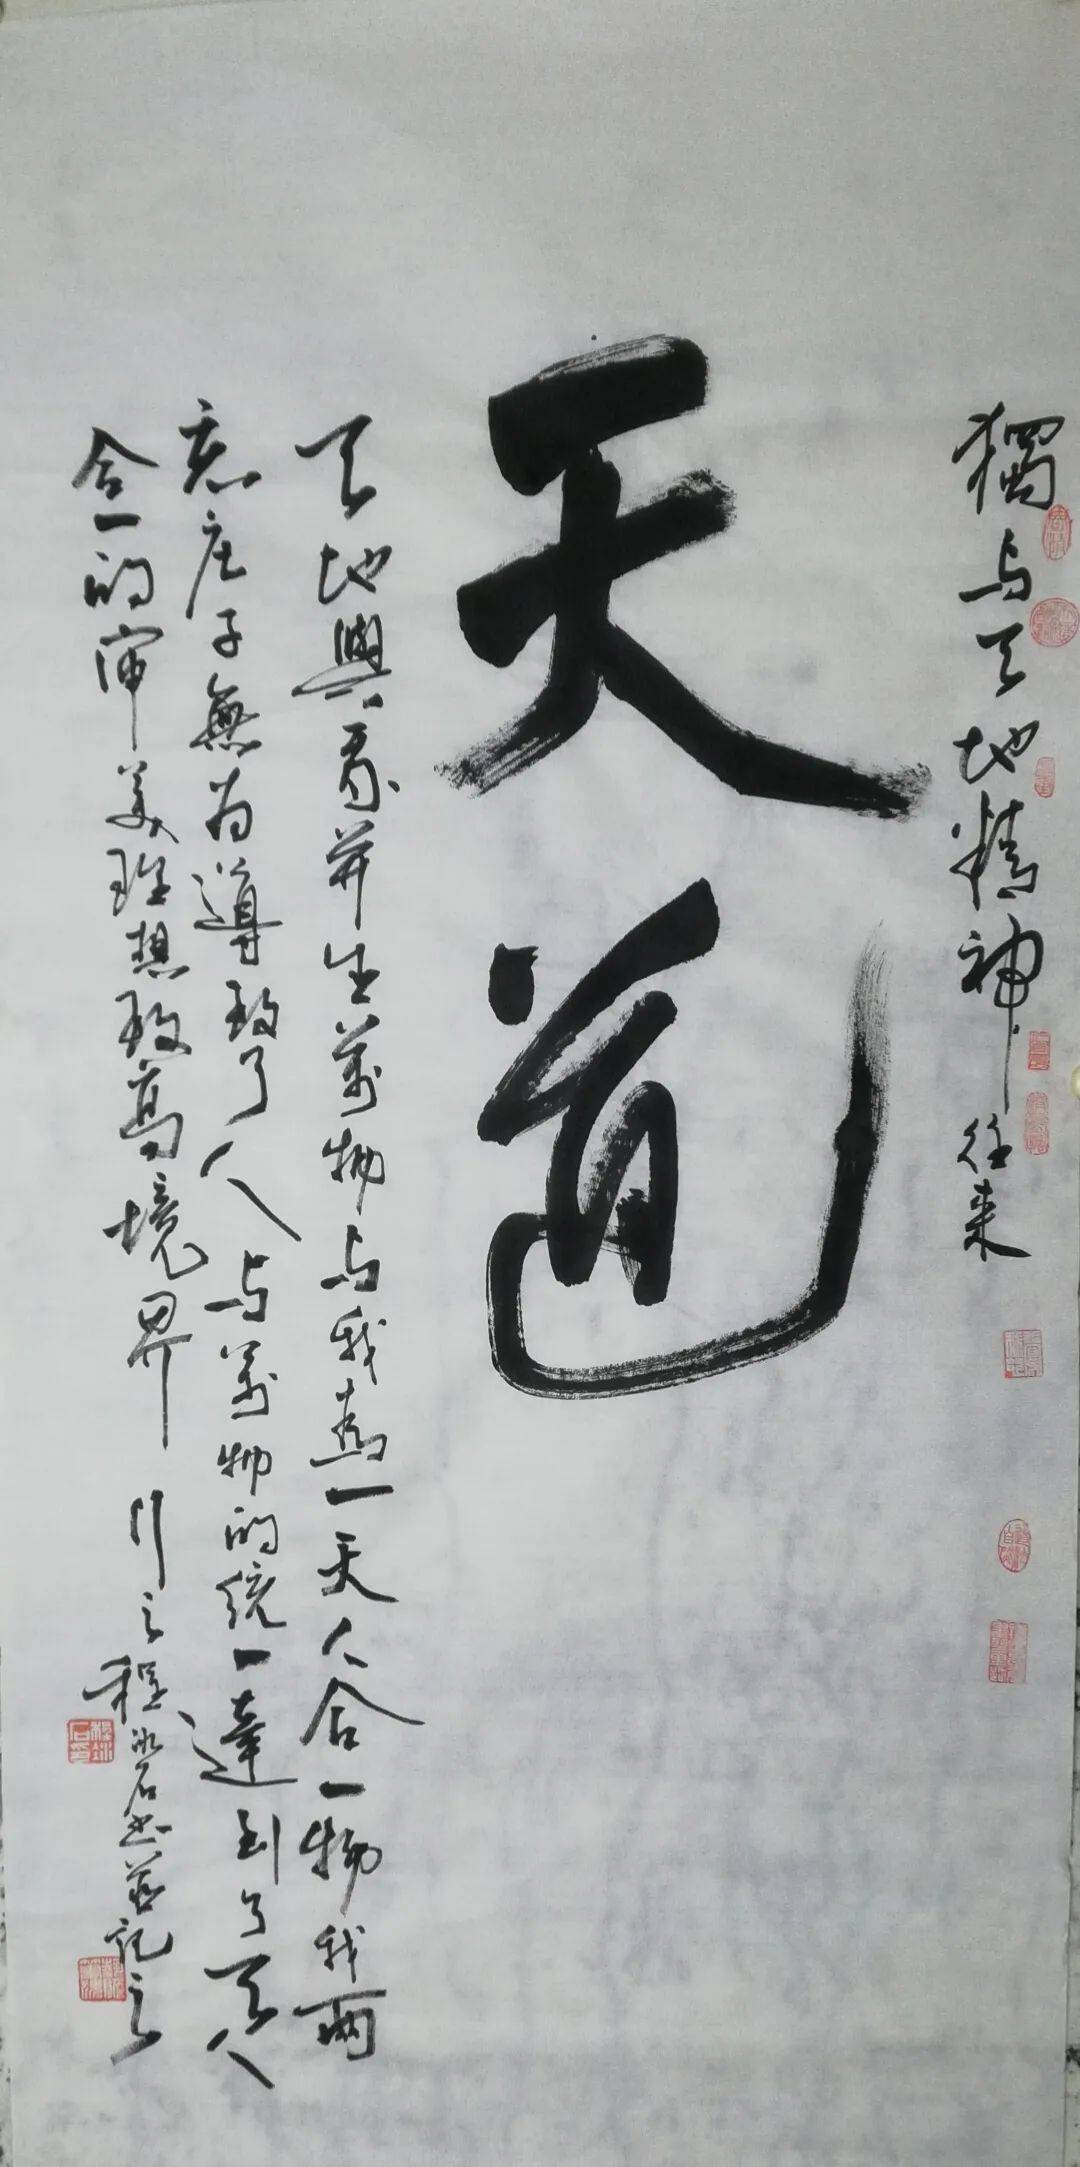 獨与天地精神往来
天道
天地與我并生萬物与我為一天人合一物我兩
忘庄子無为導致了人与萬物的统一達到了天人
合一的审美理想致高境界 行之程冰石书并記之